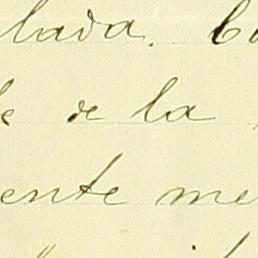 lada. Co
de la
ente me